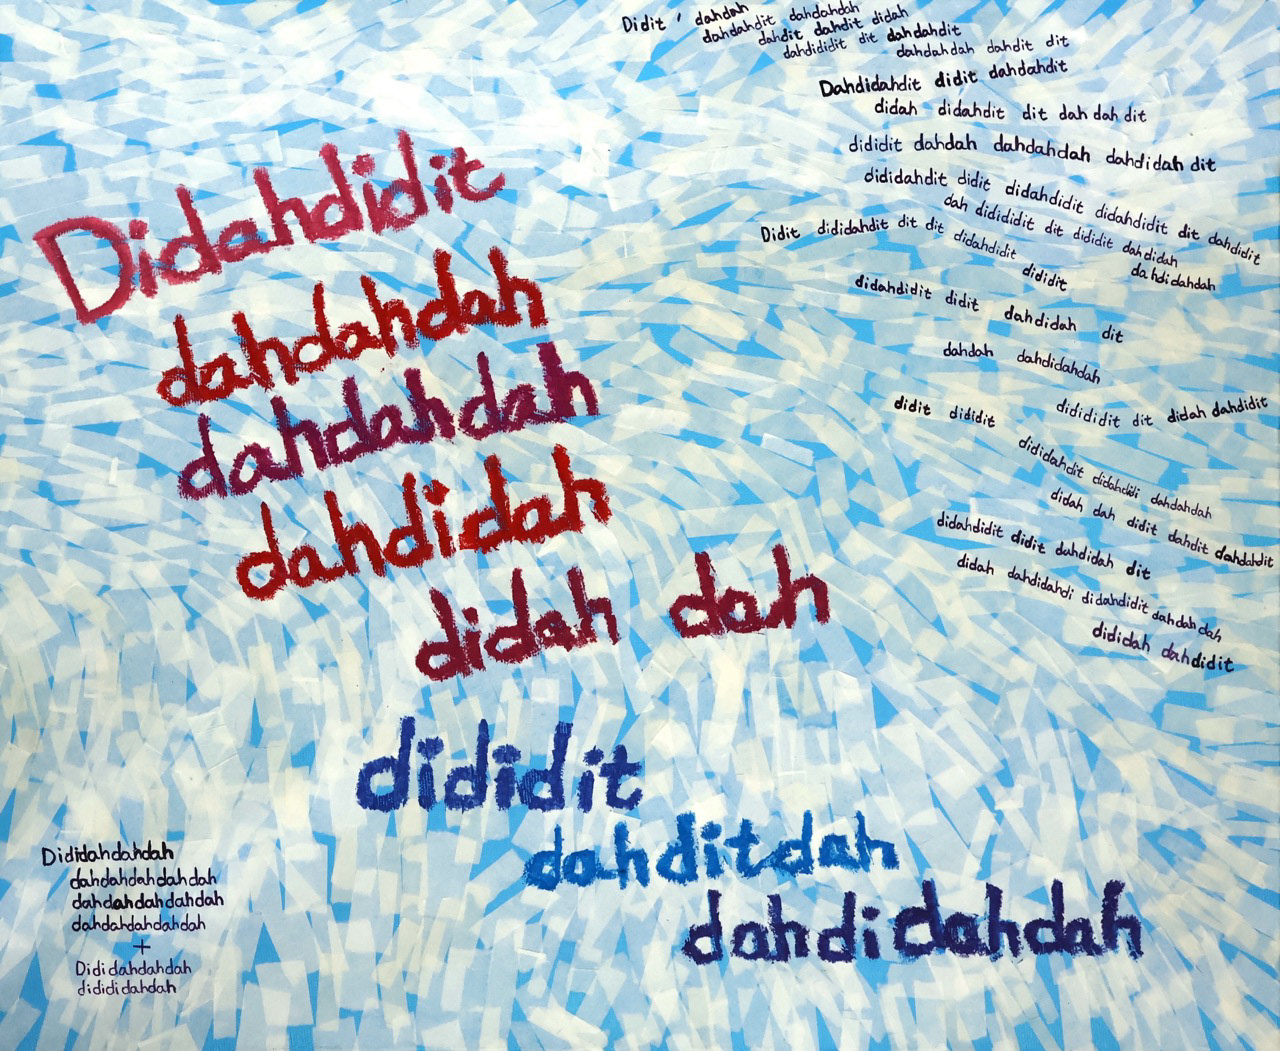 Didit ' dahdah
dahdahdit dahdahdah
dahdit dahdit didah
dahdididit dit dahdahdit
dahdahdah dahdit dit
Dahdidahdit didit dahdahdit
didah didahdit dit dah dah dit
dididit dahdah dahdahdah dahdidah dit
dididahdit didit didahdidit didahdidit dit dahdidit
dah didididit dit dididit dahdidah
dahdidahdah
Didit dididahdit dit dit didahdidit
dididit
didahdidit didit dahdidah dit
dahdah dahdidahdah
didit dididit didididit dit didah dahdidit
dididahdit didahdidi dahdahdah
didah dah didit dahdit dahdahdit
didahdidit didit dahdidah dit
didah dahdidahdi didahdidit dahdahdah
dididah dahdidit
Didahdidit
dahdahdah
dahdahdah
dahdidah
didah dah
dididit
dahditdah
dahdidahdah
Dididahdahdah
dahdahdahdahdah
dahdahdahdahdah
dahdahdahdahdah
+
Dididahdahdah
didididahdah